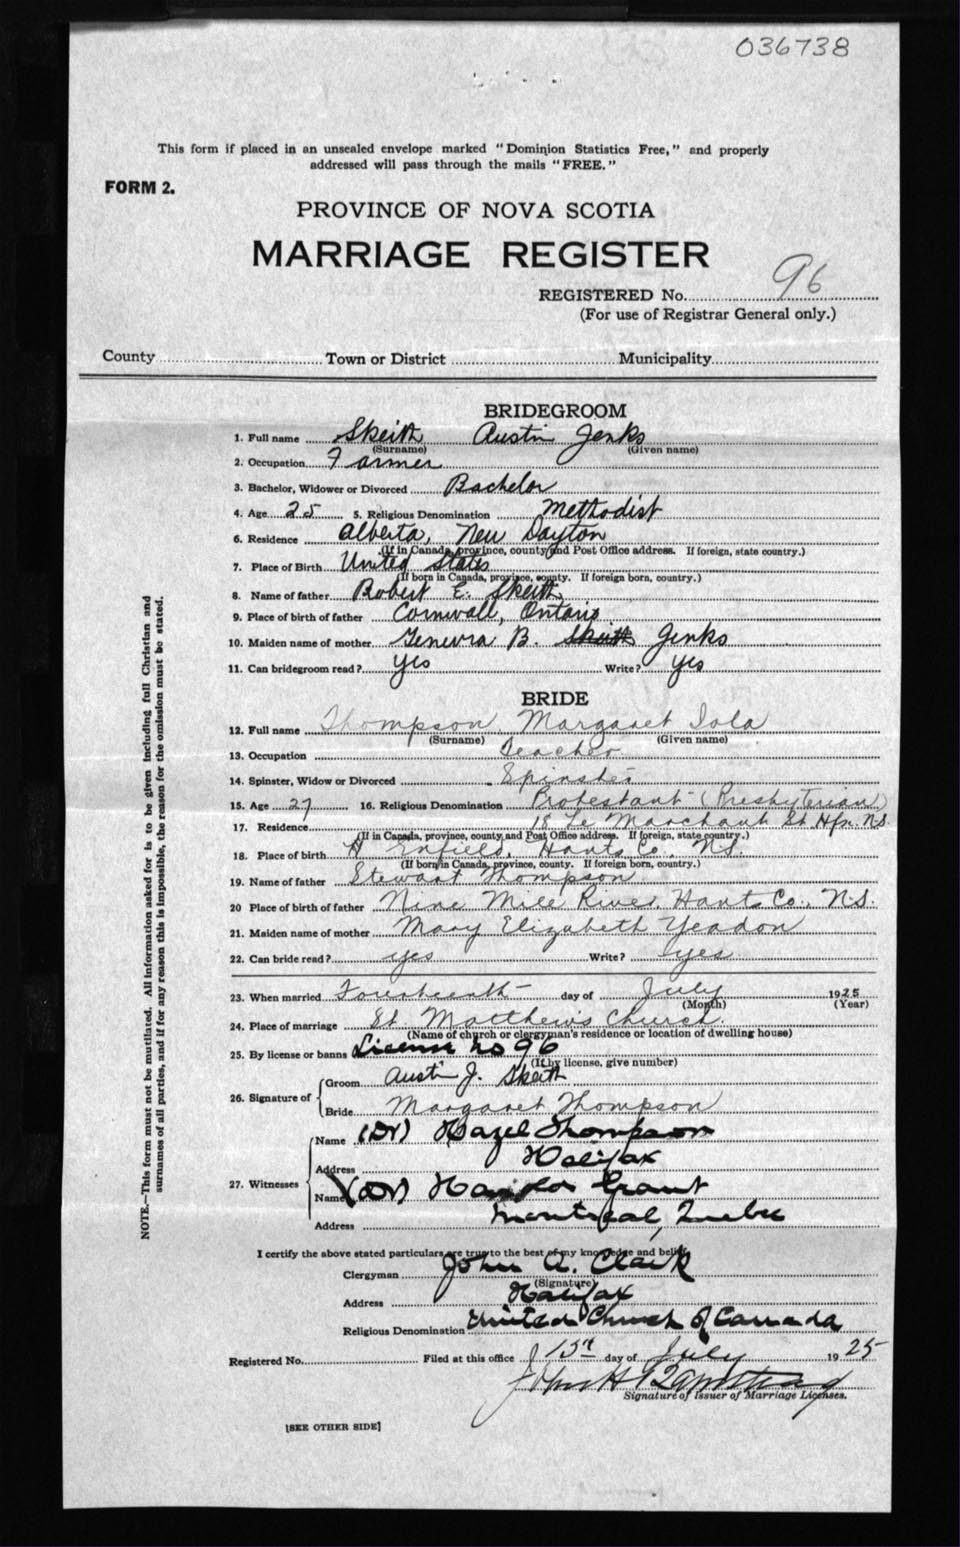 036738
This form if placed in an unsealed envelope marked "Dominion Statistics Free," and properly
addressed will pass through the mails "FREE."
FORM 2.
PROVINCE OF NOVA SCOTIA
MARRIAGE REGISTER
REGISTERED No. 96
(For use of Registrar General only.)
County Town or District Municipality
BRIDEGROOM
1. Full name Skeith Austin Jenks
(Surname) (Given name)
2. Occupation Farmer
3. Bachelor, Widower or Divorced Bachelor
4. Age 25 5. Religious Denomination Methodist
6. Residence Alberta, New Dayton
(If in Canada, province, county and Post Office address. If foreign, state country.)
7. Place of Birth United States
(If born in Canada, province, county. If foreign born, country.)
8. Name of father Robert E. Skeith
9. Place of birth of father Cornwall, Ontario
10. Maiden name of mother Genevra B. Skeith Jenks
11. Can bridegroom read? yes Write? yes
BRIDE
12. Full name Thompson, Margaret Iola
(Surname) (Given name)
13. Occupation Teacher
14. Spinster, Widow or Divorced Spinster
15. Age 27 16. Religious Denomination Protestant (Presbyterian)
17. Residence 18 Le Marchant St. Hfx. N.S.
(If in Canada, province, county and Post Office address. If foreign, state country.)
18. Place of birth Enfield, Hants Co. N.S.
(If born in Canada, province, county. If foreign born, country.)
19. Name of father Stewart Thompson
20 Place of birth of father Nine Mile River, Hants Co., N.S.
21. Maiden name of mother Mary Elizabeth Yeadon
22. Can bride read? yes Write? yes
23. When married Fourteenth day of July 1925
(Month) (Year)
24. Place of marriage St. Matthew's Church.
(Name of church or clergyman's residence or location of dwelling house)
25. By license or banns License no 96
(If by license, give number)
26. Signature of Groom Austin J. Skeith
Bride Margaret Thompson
27. Witnesses Name (Dr) Hazel Thompson
Address Halifax
Name (Dr) Harold Grant
Address Montreal, Quebec
I certify the above stated particulars are true to the best of my knowledge and belief.
Clergyman John A. Clark
(Signature)
Address Halifax
Religious Denomination United Church of Canada
Registered No. Filed at this office 15th day of July 1925
Signature of Issuer of Marriage Licenses.
[SEE OTHER SIDE]
NOTE.—This form must not be mutilated. All information asked for is to be given including full Christian and
surnames of all parties, and if for any reason this is impossible, the reason for the omission must be stated.